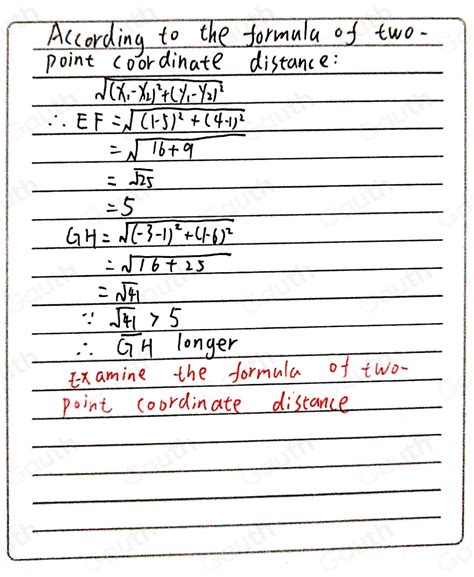 According to the formula of two-
point coordinate distance:
√(x₁-x₂)²+(y₁-y₂)²
∴ EF = √(1-5)² + (4-1)²
= √16+9
= √25
=5
GH = √(-3-1)² + (1-6)²
= √16+25
= √41
∵ √41 > 5
∴ GH longer
Examine the formula of two-
point coordinate distance